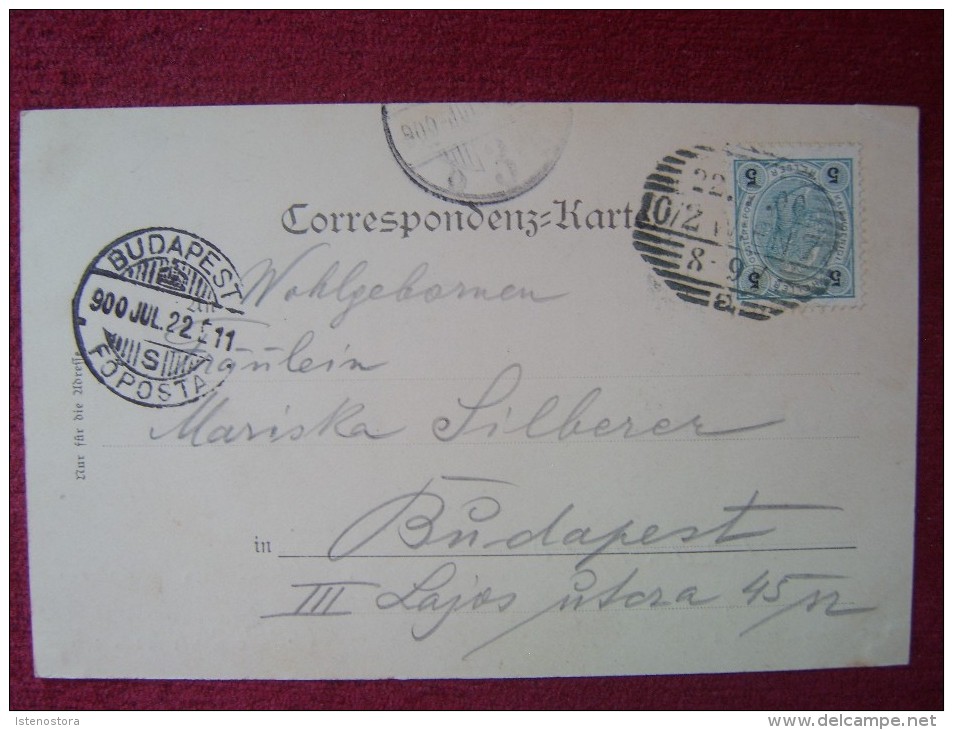 Correspondenz-Karte
Wohlgebornen
Fräulein
Mariska Silberer
in Budapest
III Lajos utcza 45 sz
Nur für die Adresse
BUDAPEST
900 JUL. 22
11
S
FŐPOSTA
22.
10/2
8-9
a
5
5
5
5
Istenostora
www.delcampe.net